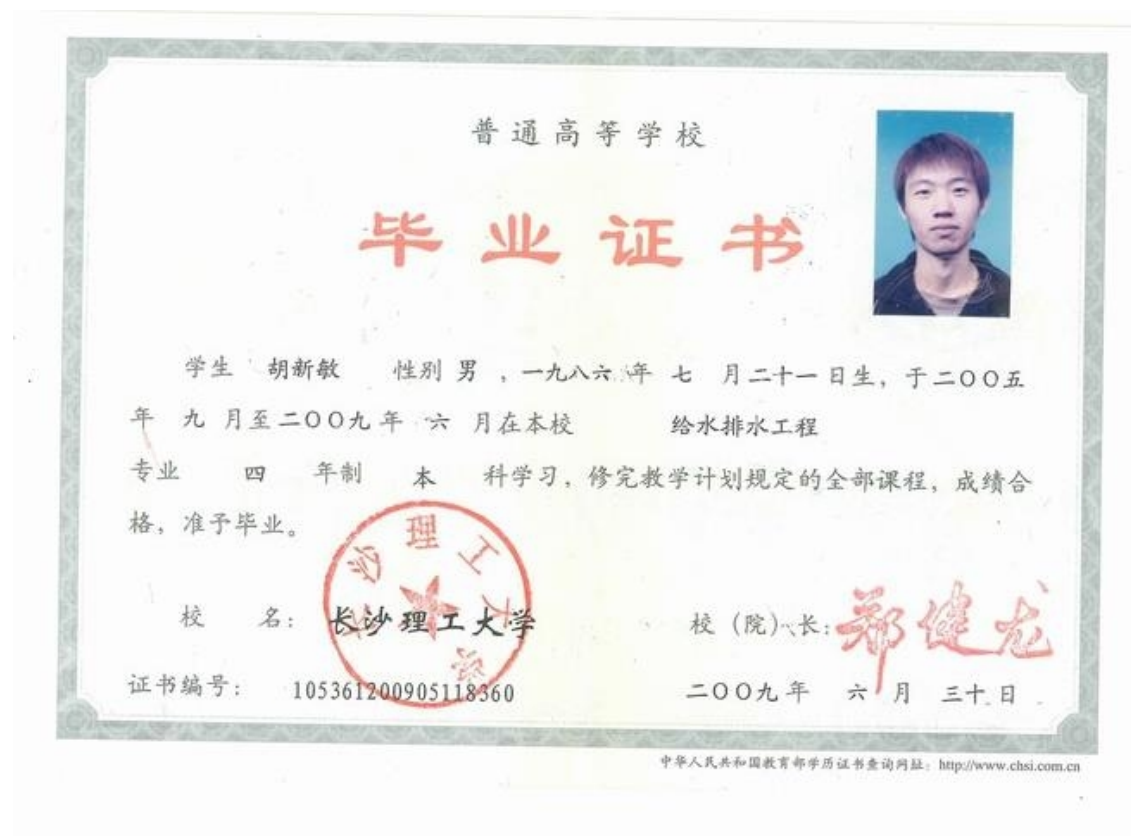 普通高等学校
毕业证书
学生 胡新敏 性别 男 ，一九八六 年 七 月 二十一 日生，于二〇〇五
年 九 月至二〇〇九年 六 月在本校 给水排水工程
专业 四 年制 本 科学习，修完教学计划规定的全部课程，成绩合
格，准予毕业。
长沙理工大学
校 名： 长沙理工大学 校（院）长： 郑健龙
证书编号： 105361200905118360 二〇〇九年 六 月 三十 日
中华人民共和国教育部学历证书查询网址：http://www.chsi.com.cn